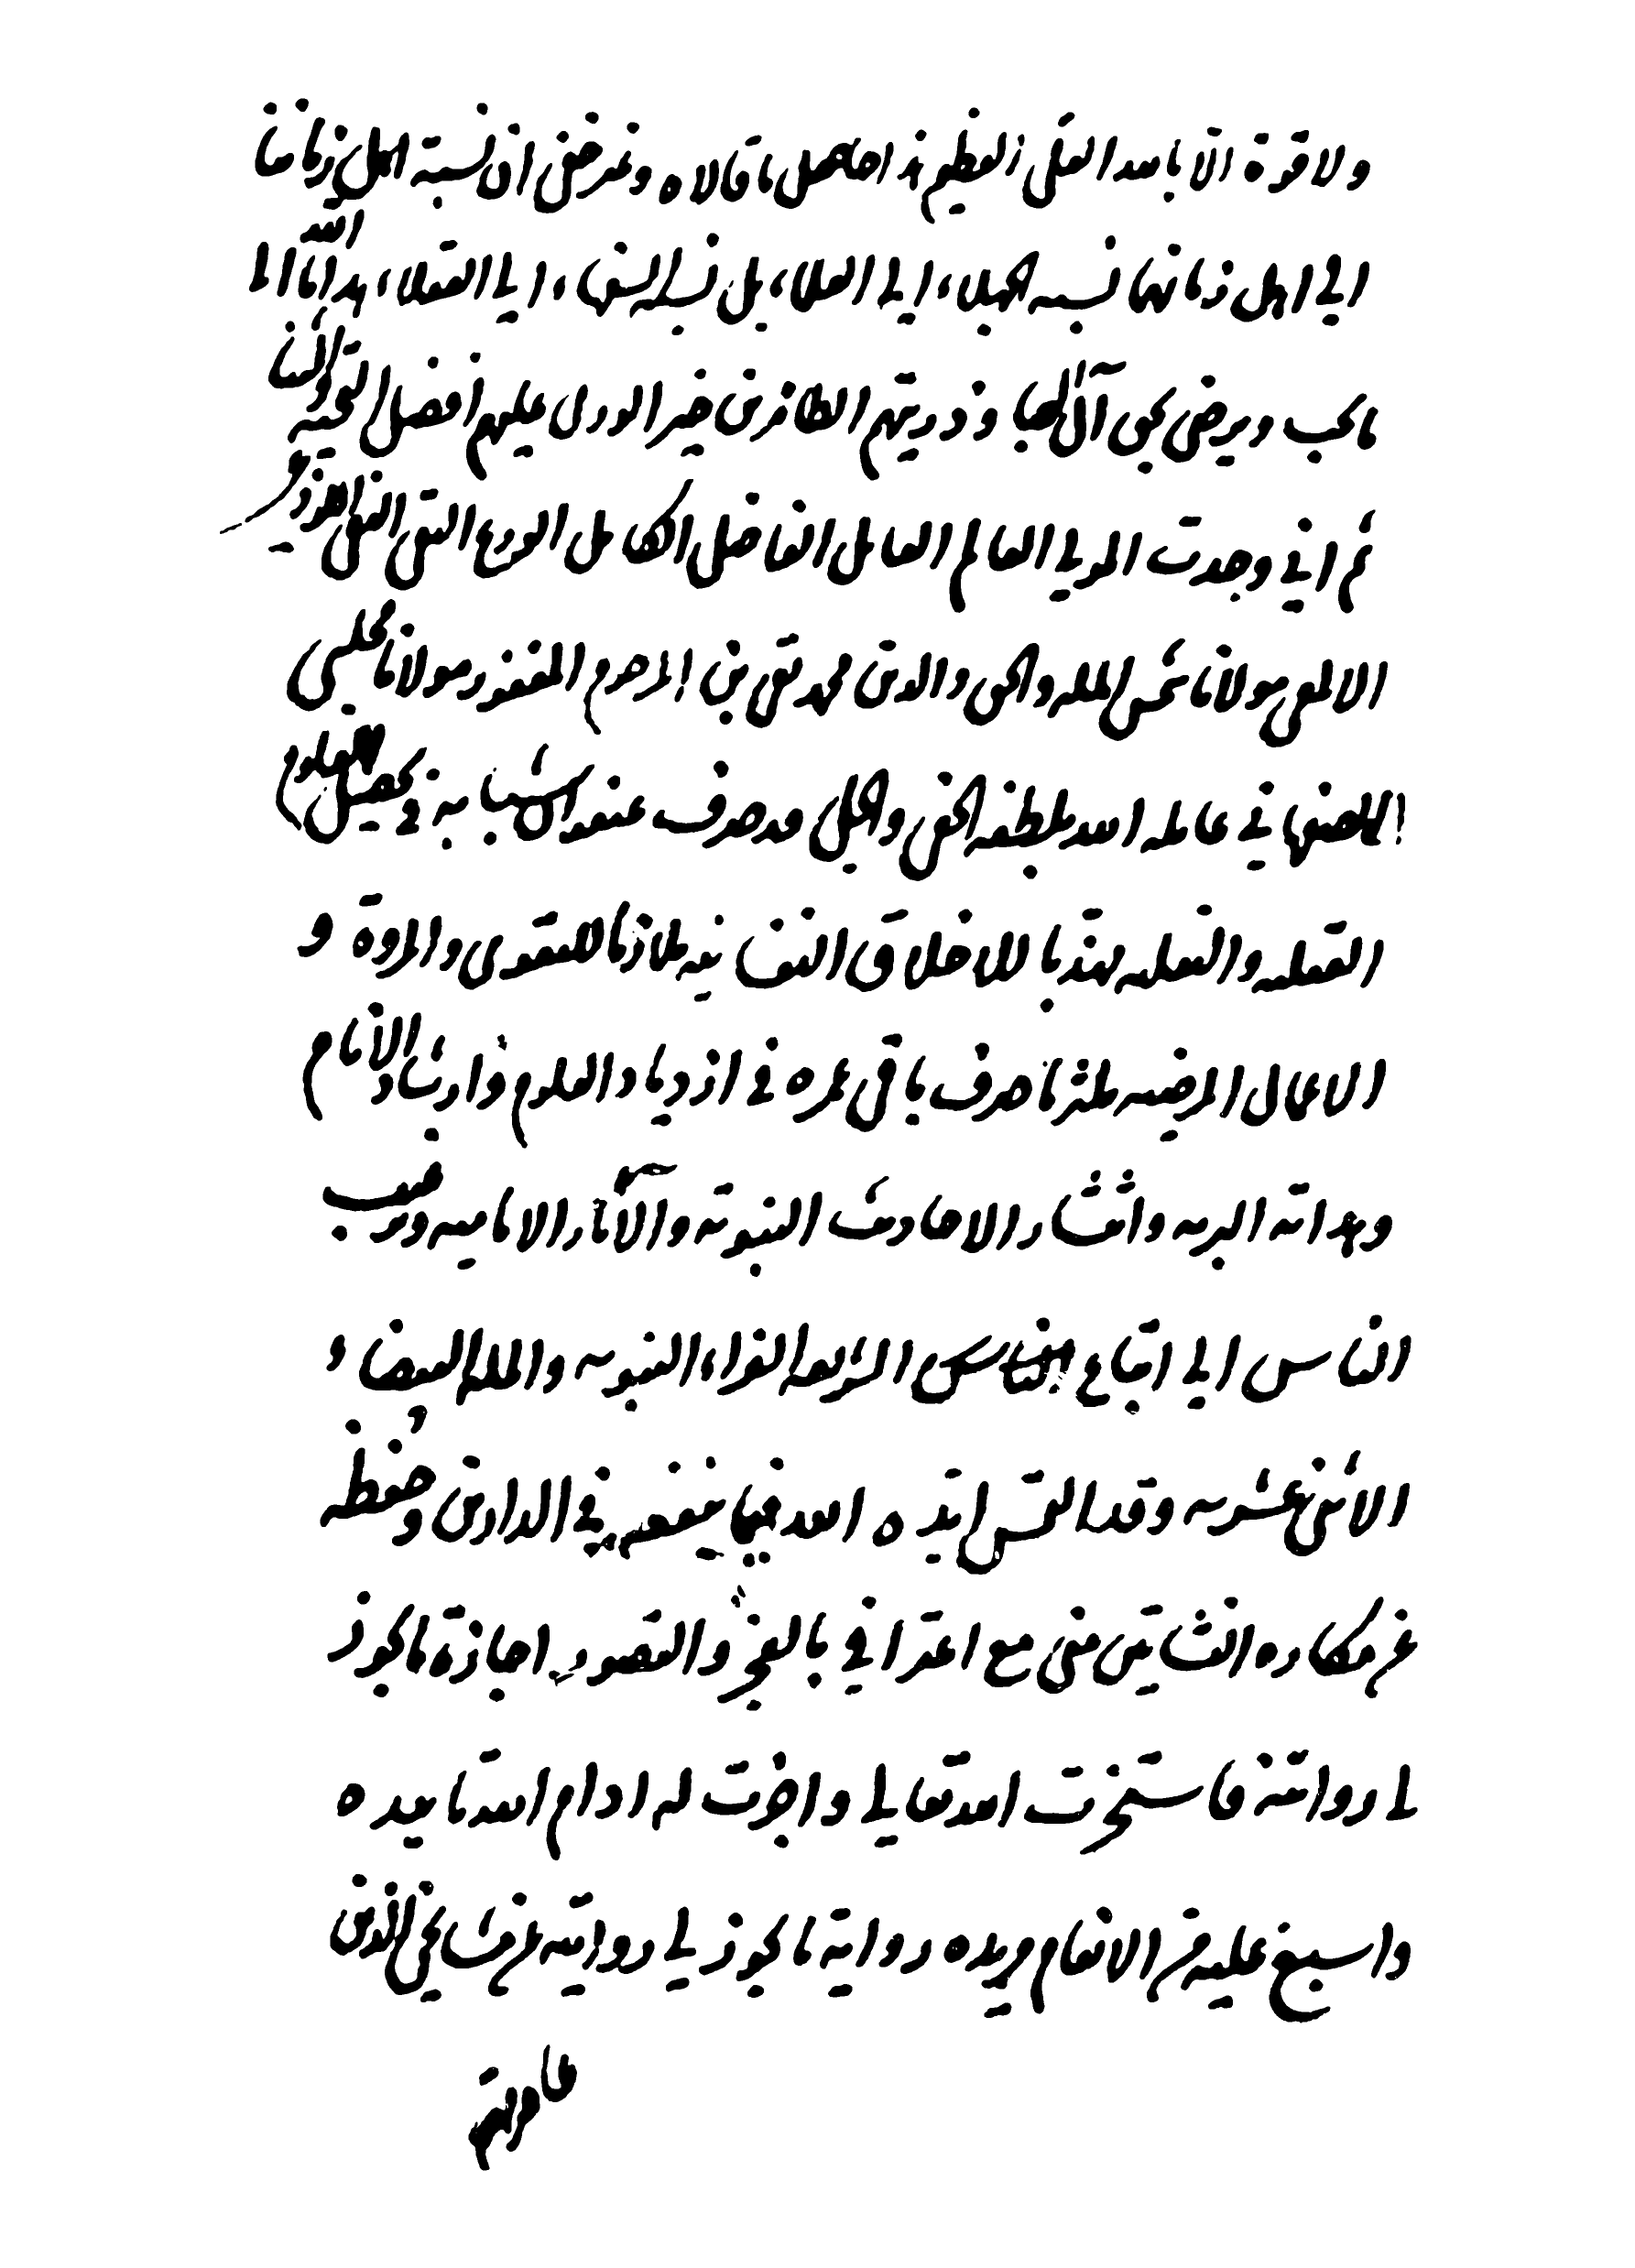 ولا قوة الا بالله العلي العظيم هذا حاصل ما قالاه وغرضي ان نسبة اهل زماننا
الى اهل زمانهما نسبه الجهلاء الى العلماء بل نسبة السفهاء الى العقلاء هدانا الله الى ما
ما يحب ويرضى بحق آل العبا وذريتهم الطاهرين خير الورى عليهم افضل التحية والثنا
ثم اني وجدت المولى العالم العامل الفاضل الكامل الورع التقي النقي
الالمعي مولانا شمس المله والحق والدين محمد تقي بن المرحوم المغفور مولانا مجلسي
الاصفهاني عامله الله بلطفه الخفي والجلي قد صرف عنفوان شبابه في تحصيل العلوم
العقليه والنقليه مهذبا للاخلاق النفسانيه ملازما للتقوى والمروة و
الاعمال المرضيه ملتزما صرف باقي عمره في ازدياد العلوم وارشاد الانام
وهداية البريه وانتشار الاحاديث النبوية والآثار الاماميه وترغيب
الناس الى اتباع الشريعه الغراء النبويه والمله البيضاء
الاثني عشريه وقد التمس ايده الله فيما ينفعه في الدارين وحفظه
عن مكاره النشأتين مني مع اعترافي بالعجز والقصور اجازة ما يجوز
لي روايته فاستخرت الله تعالى واجزت له ادام الله تاييده
واسبغ عليه من الانعام مزيده رواية ما يجوز لي روايته عن مشايخي الذين